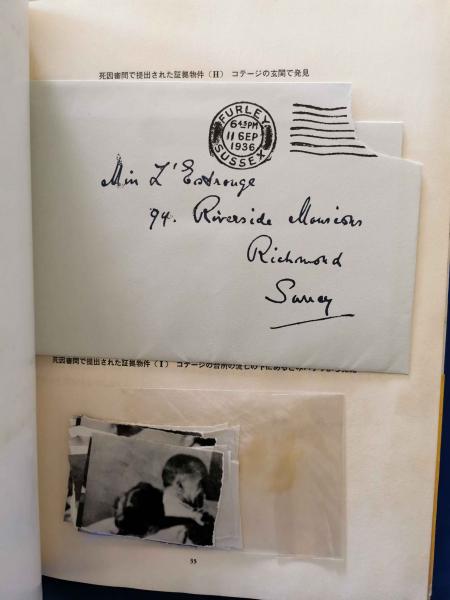 死因審問で提出された証拠物件（H） コテージの玄関で発見
FURLEY
6 45 PM
11 SEP
1936
SUSSEX
L'Estrange
94. Riverside Mansions
Richmond
Surrey
死因審問で提出された証拠物件（I） コテージの台所の流しの下にある
33